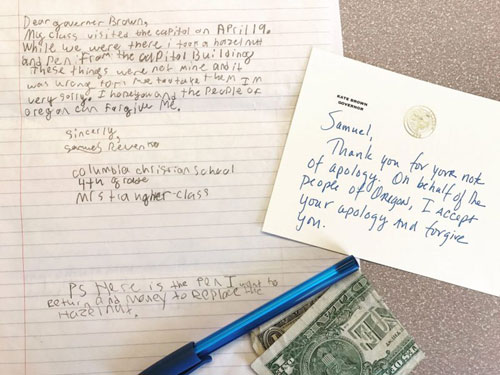 Dear governer Brown,
My class visited the capitol on APRil 19.
While we were there i took a hazel nut
and Pen from the caPitol Building
These things were not mine and it
was wrong form me too take them I'm
very sorry. I hope you and the People of
oregon can forgive me.
sincerly,
Samuel
columbia christian school
4th grade
Mrs class
PS Here is the Pen I want to
Return and money to RePlace the
Hazelnut.
KATE BROWN
GOVERNOR
Samuel,
Thank you for your note
of apology. On behalf of the
people of Oregon, I accept
your apology and forgive
you.
ONE